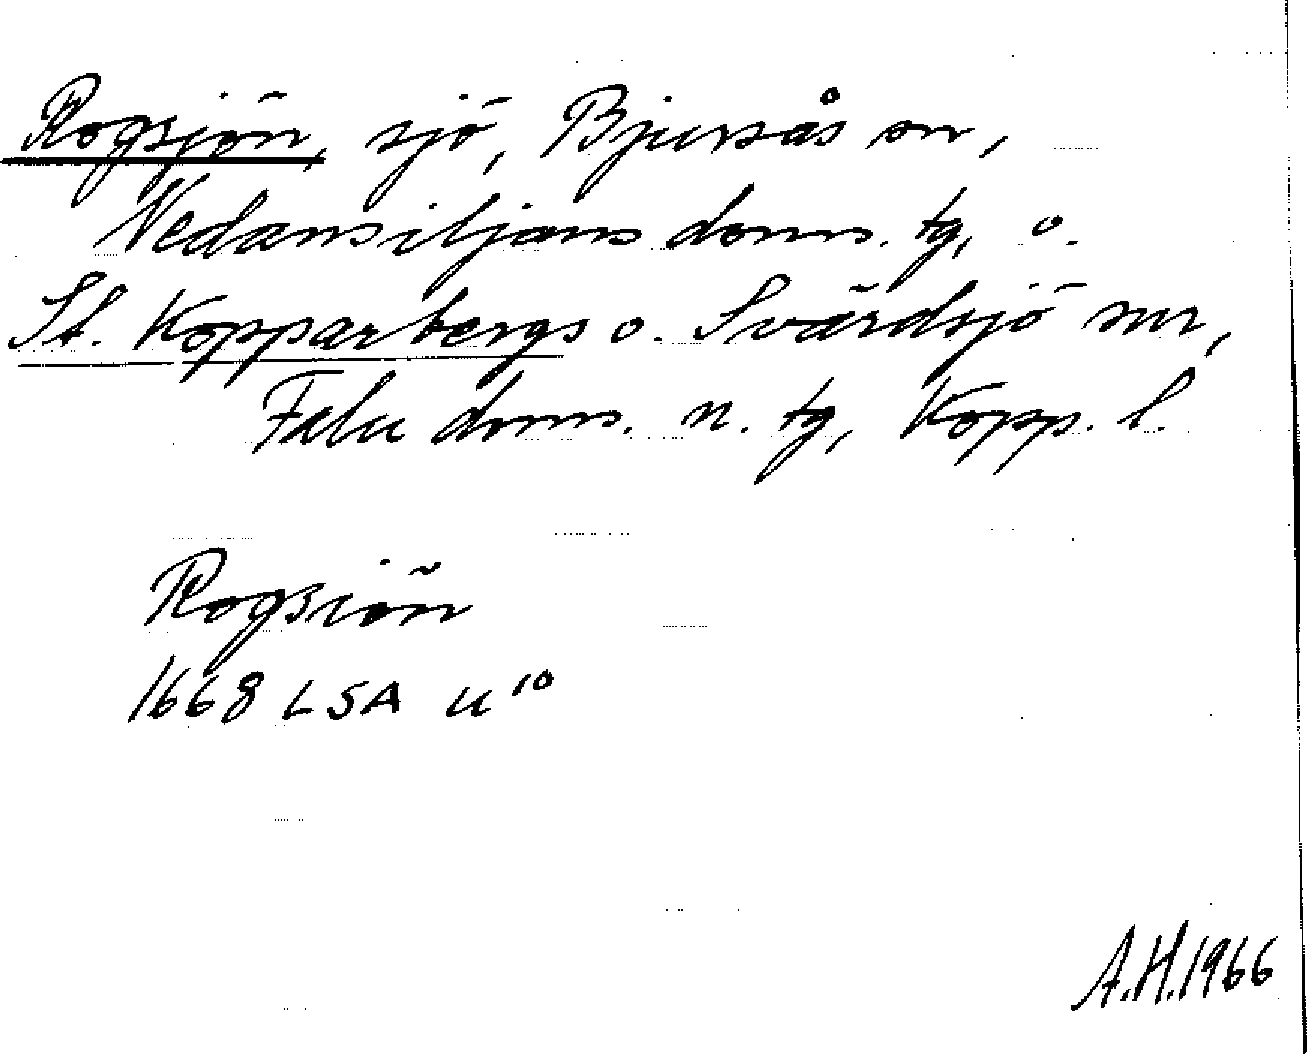 Rogsjön, sjö, Bjursås sn,
Nedansiljans doms. tg, o.
St. Kopparbergs o. Svärdsjö snr,
Falu doms. n. tg, Kopp. l.
Rogsiön
1668 LSA U 10
A.H. 1966